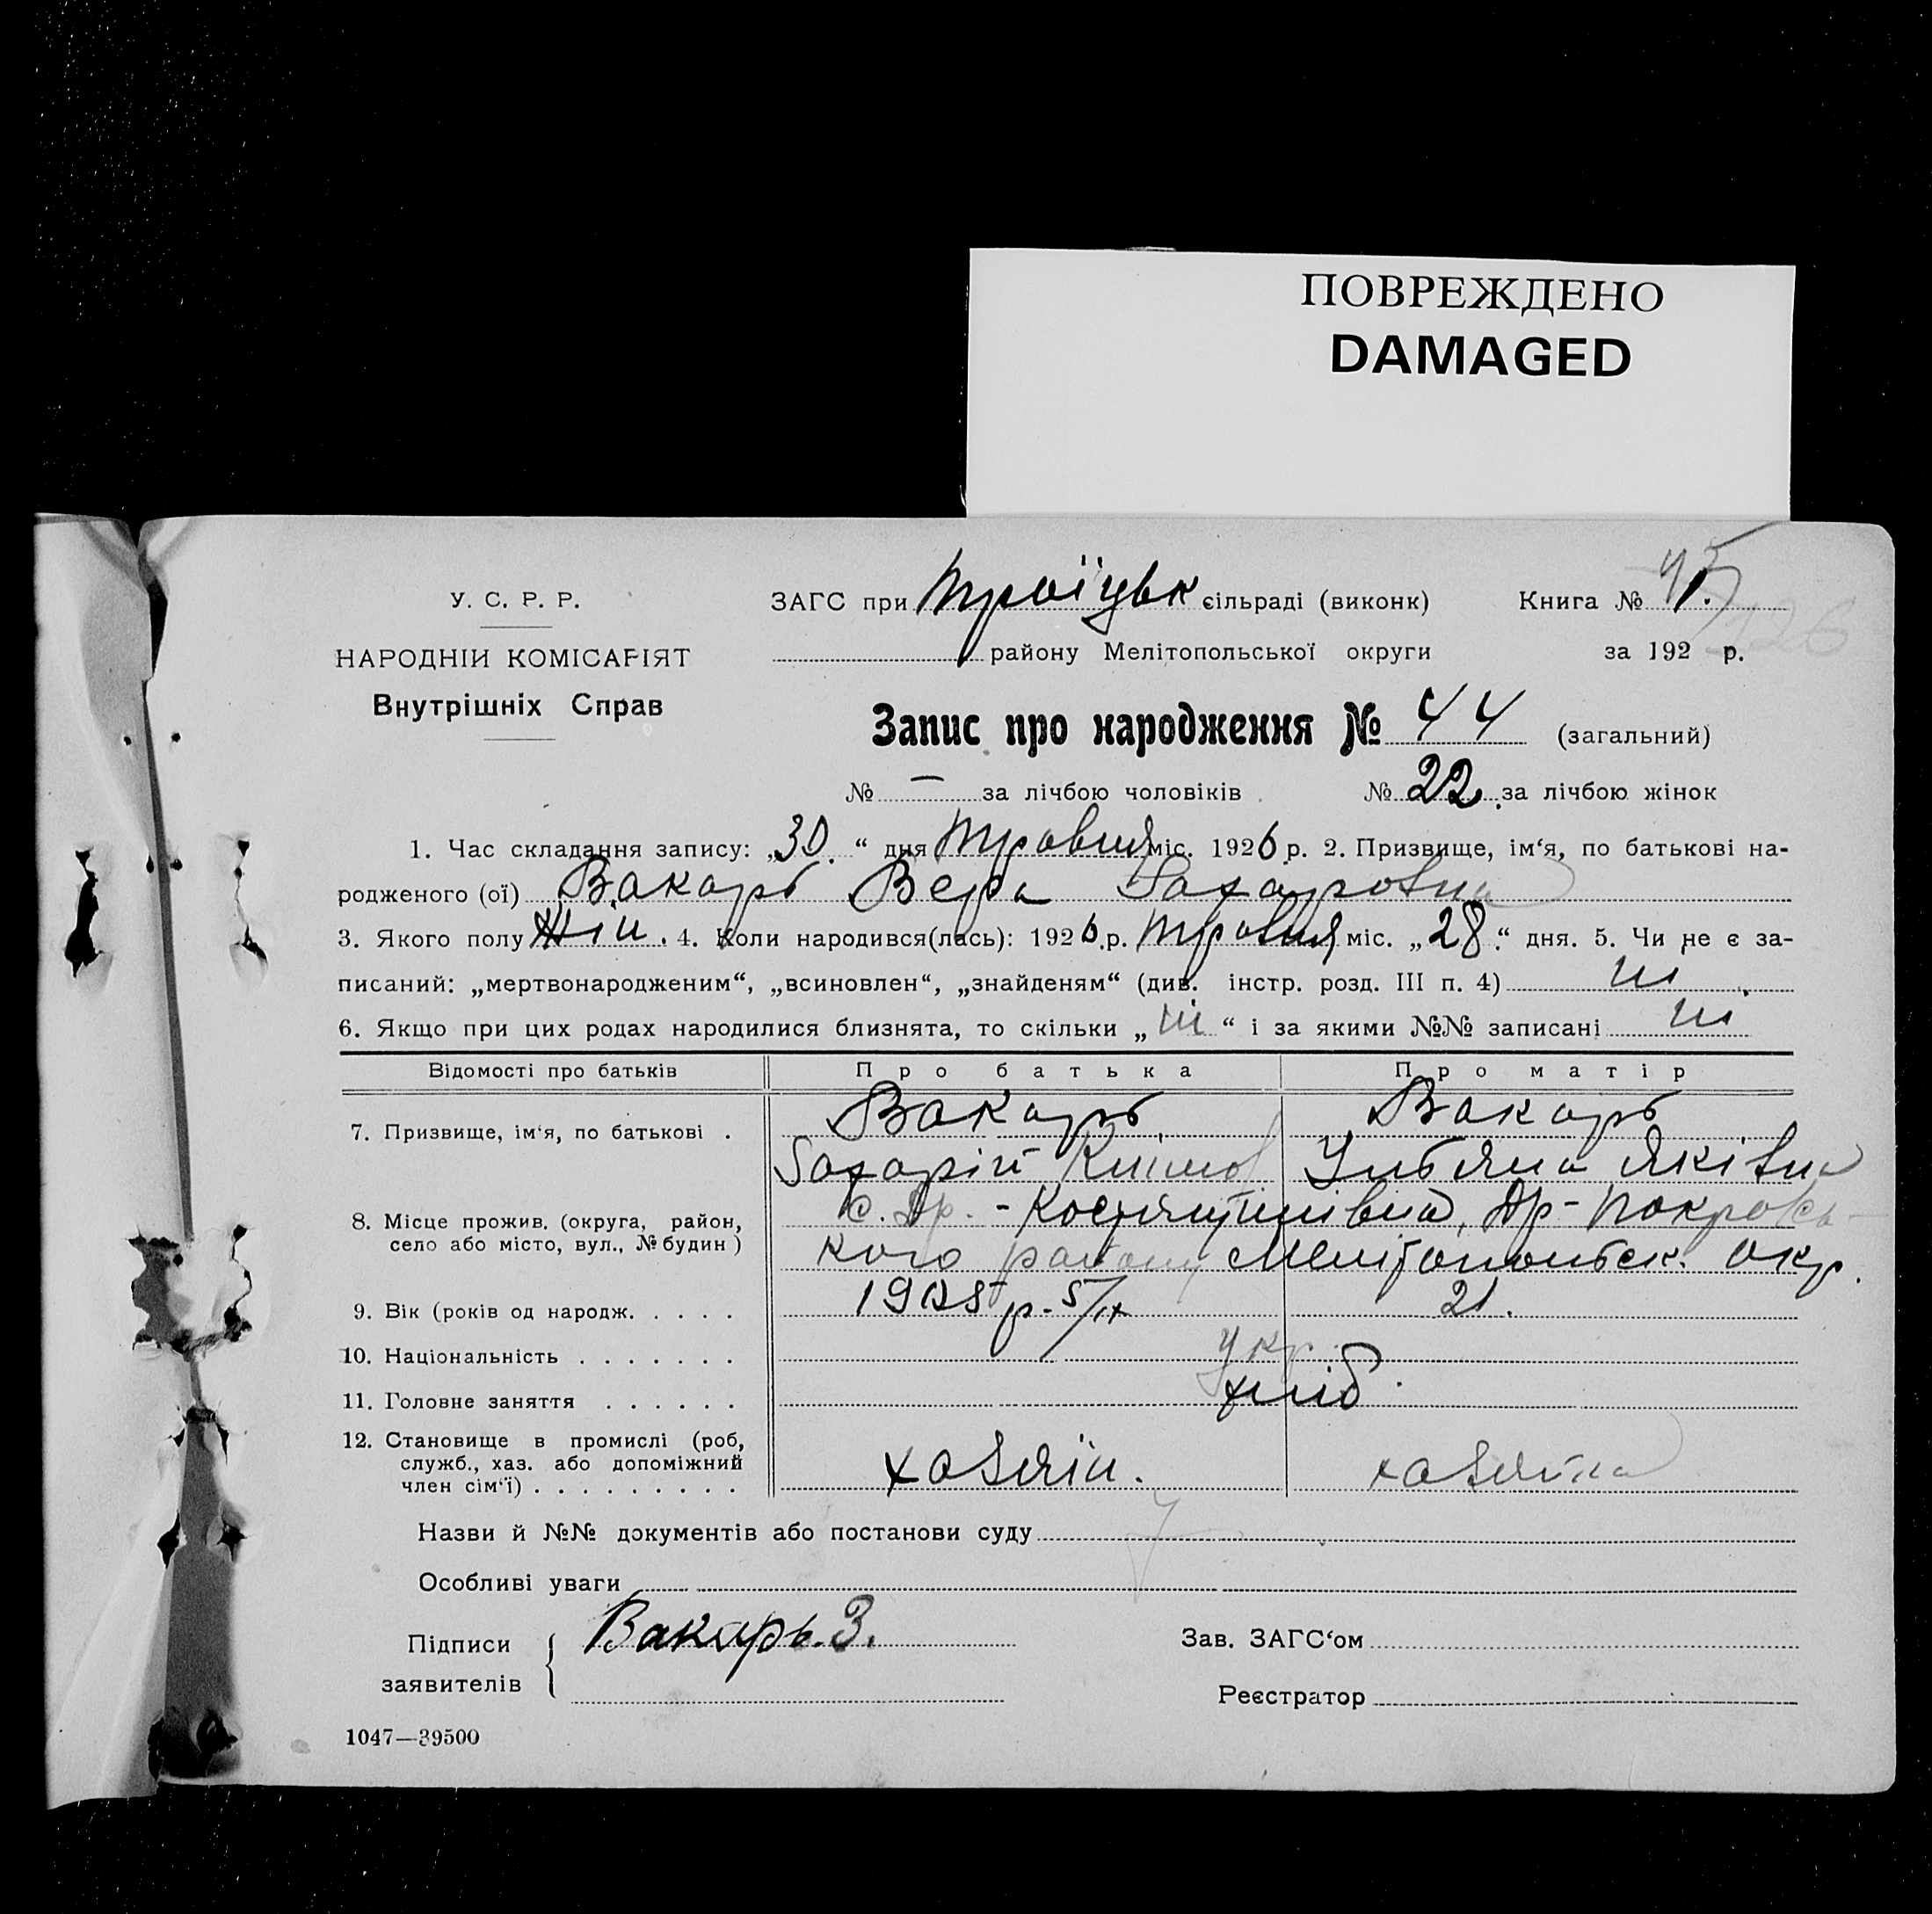 ПОВРЕЖДЕНО
DAMAGED
У. С. Р. Р.
НАРОДНІИ КОМІСАРІЯТ
Внутрішніх Справ
ЗАГС при Троїцьк сільраді (виконк) Книга № 1.
району Мелітопольської округи за 192 р.
126
Запис про народження № 44 (загальний)
№ — за лічбою чоловіків № 22. за лічбою жінок
1. Час складання запису: „30.“ дня Травня міс. 1926 р. 2. Призвище, ім‘я, по батькові на-
родженого (ої) Вакарь Вера Захаровна
3. Якого полу Жін. 4. Коли народився(лась): 1926.р. Травня міс. „28.“ дня. 5. Чи не є за-
писаний: „мертвонародженим“, „всиновлен“, „знайденям“ (див. інстр. розд. III п. 4) ні.
6. Якщо при цих родах народилися близнята, то скільки „ні“ і за якими №№ записані ні
Відомості про батьків Про батька Про матір
7. Призвище, ім‘я, по батькові . Вакарь Вакарь
Захарій Климов Ульяна Яківна
8. Місце прожив. (округа, район,
село або місто, вул., № будин) с. Др.-Костянтинівка, Др-Покровсь-
кого району Мелітопольск. окр.
9. Вік (років од народж. . . . . р. 5/IX 21.
10. Національність . . . . . . . укр.
11. Головне заняття . . . . . . хліб.
12. Становище в промислі (роб,
служб., хаз. або допоміжний
член сім‘ї) . . . . . . . . . хазяїн. хазяйка
Назви й №№ документів або постанови суду
Особливі уваги
Підписи Вакарь. З. Зав. ЗАГС‘ом
заявителів Реєстратор
1047—39500